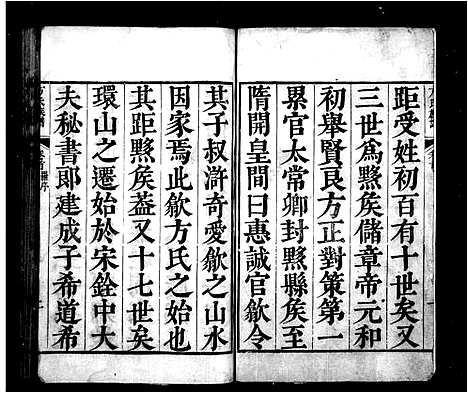 距受姓初百有十世矣又
三世為黟矦儲章帝元和
初舉賢良方正對策第一
累官太常卿封黟縣矦至
隋開皇間曰惠誠官歙令
其子叔滸奇愛歙之山水
因家焉此歙方氏之始也
其距黟矦蓋又十七世矣
環山之遷始於宋銓中大
夫秘書郎建成子希道希